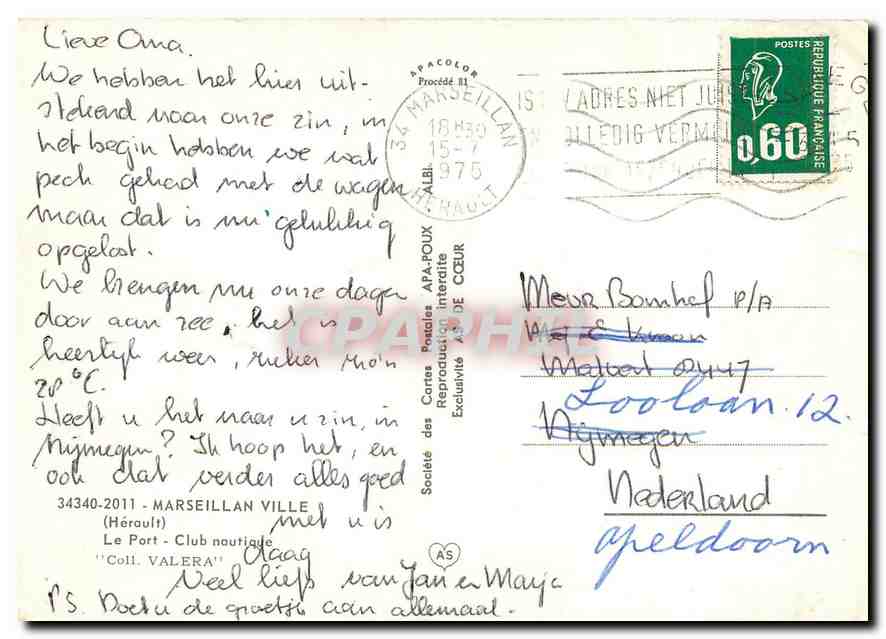 Lieve Oma.
We hebben het hier uit-
stekend naar onze zin, in
het begin hebben we wat
pech gehad met de wagen
maar dat is nu gelukkig
opgelost.
We brengen nu onze dagen
door aan zee, het is
heerlijk weer, zeker zo'n
28 °C.
Heeft u het naar u zin, in
Nijmegen? Ik hoop het, en
ook dat verder alles goed
met u is
daag
Veel liefs van Jan en Marja
PS. Doet u de groetjes aan allemaal.
34340-2011 - MARSEILLAN VILLE
(Hérault)
Le Port - Club nautique
"Coll. VALERA"
APACOLOR
Procédé 81
ALBI
Société des Cartes Postales APA-POUX
Reproduction interdite
Exclusivité AS DE CŒUR
AS
34 MARSEILLAN
18 H30
15-7
1975
HERAULT
IS ADRES NIET JUIS
OLLEDIG VERMEL
POSTES
REPUBLIQUE FRANÇAISE
0,60
Mevr Bomhof p/a
Malvert 2447
Looloan. 12.
Nijmegen
Nederland
apeldoorn
CPAPHIL